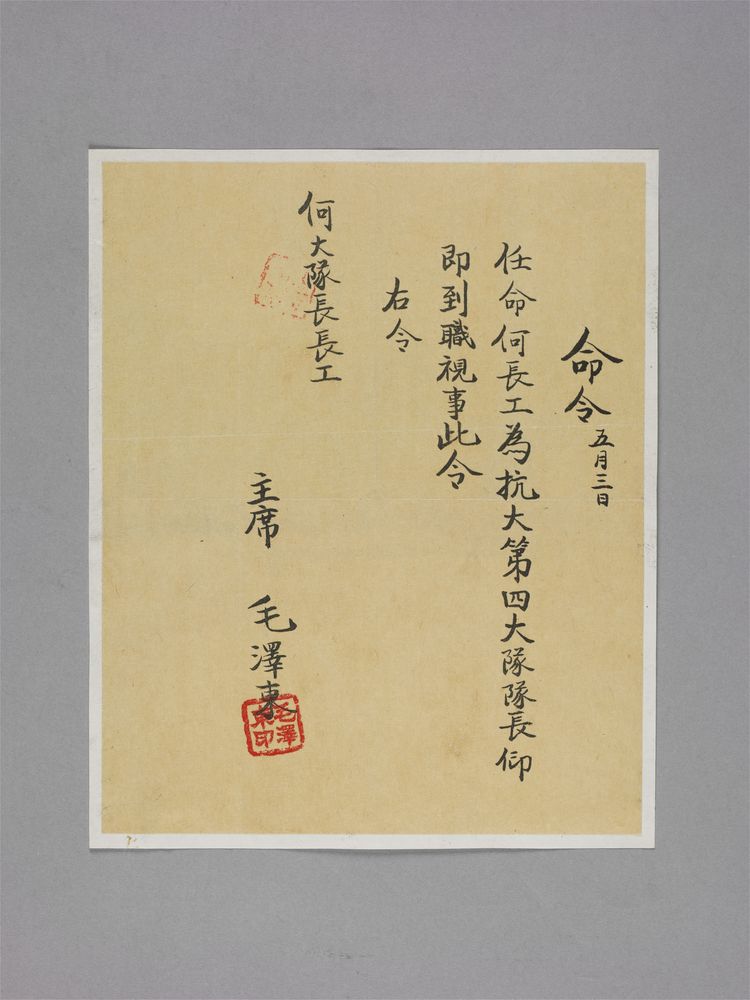 命令 五月三日
任命何長工為抗大第四大隊隊長仰
即到職視事此令
右令
何大隊長長工
主席 毛澤東
毛澤東印